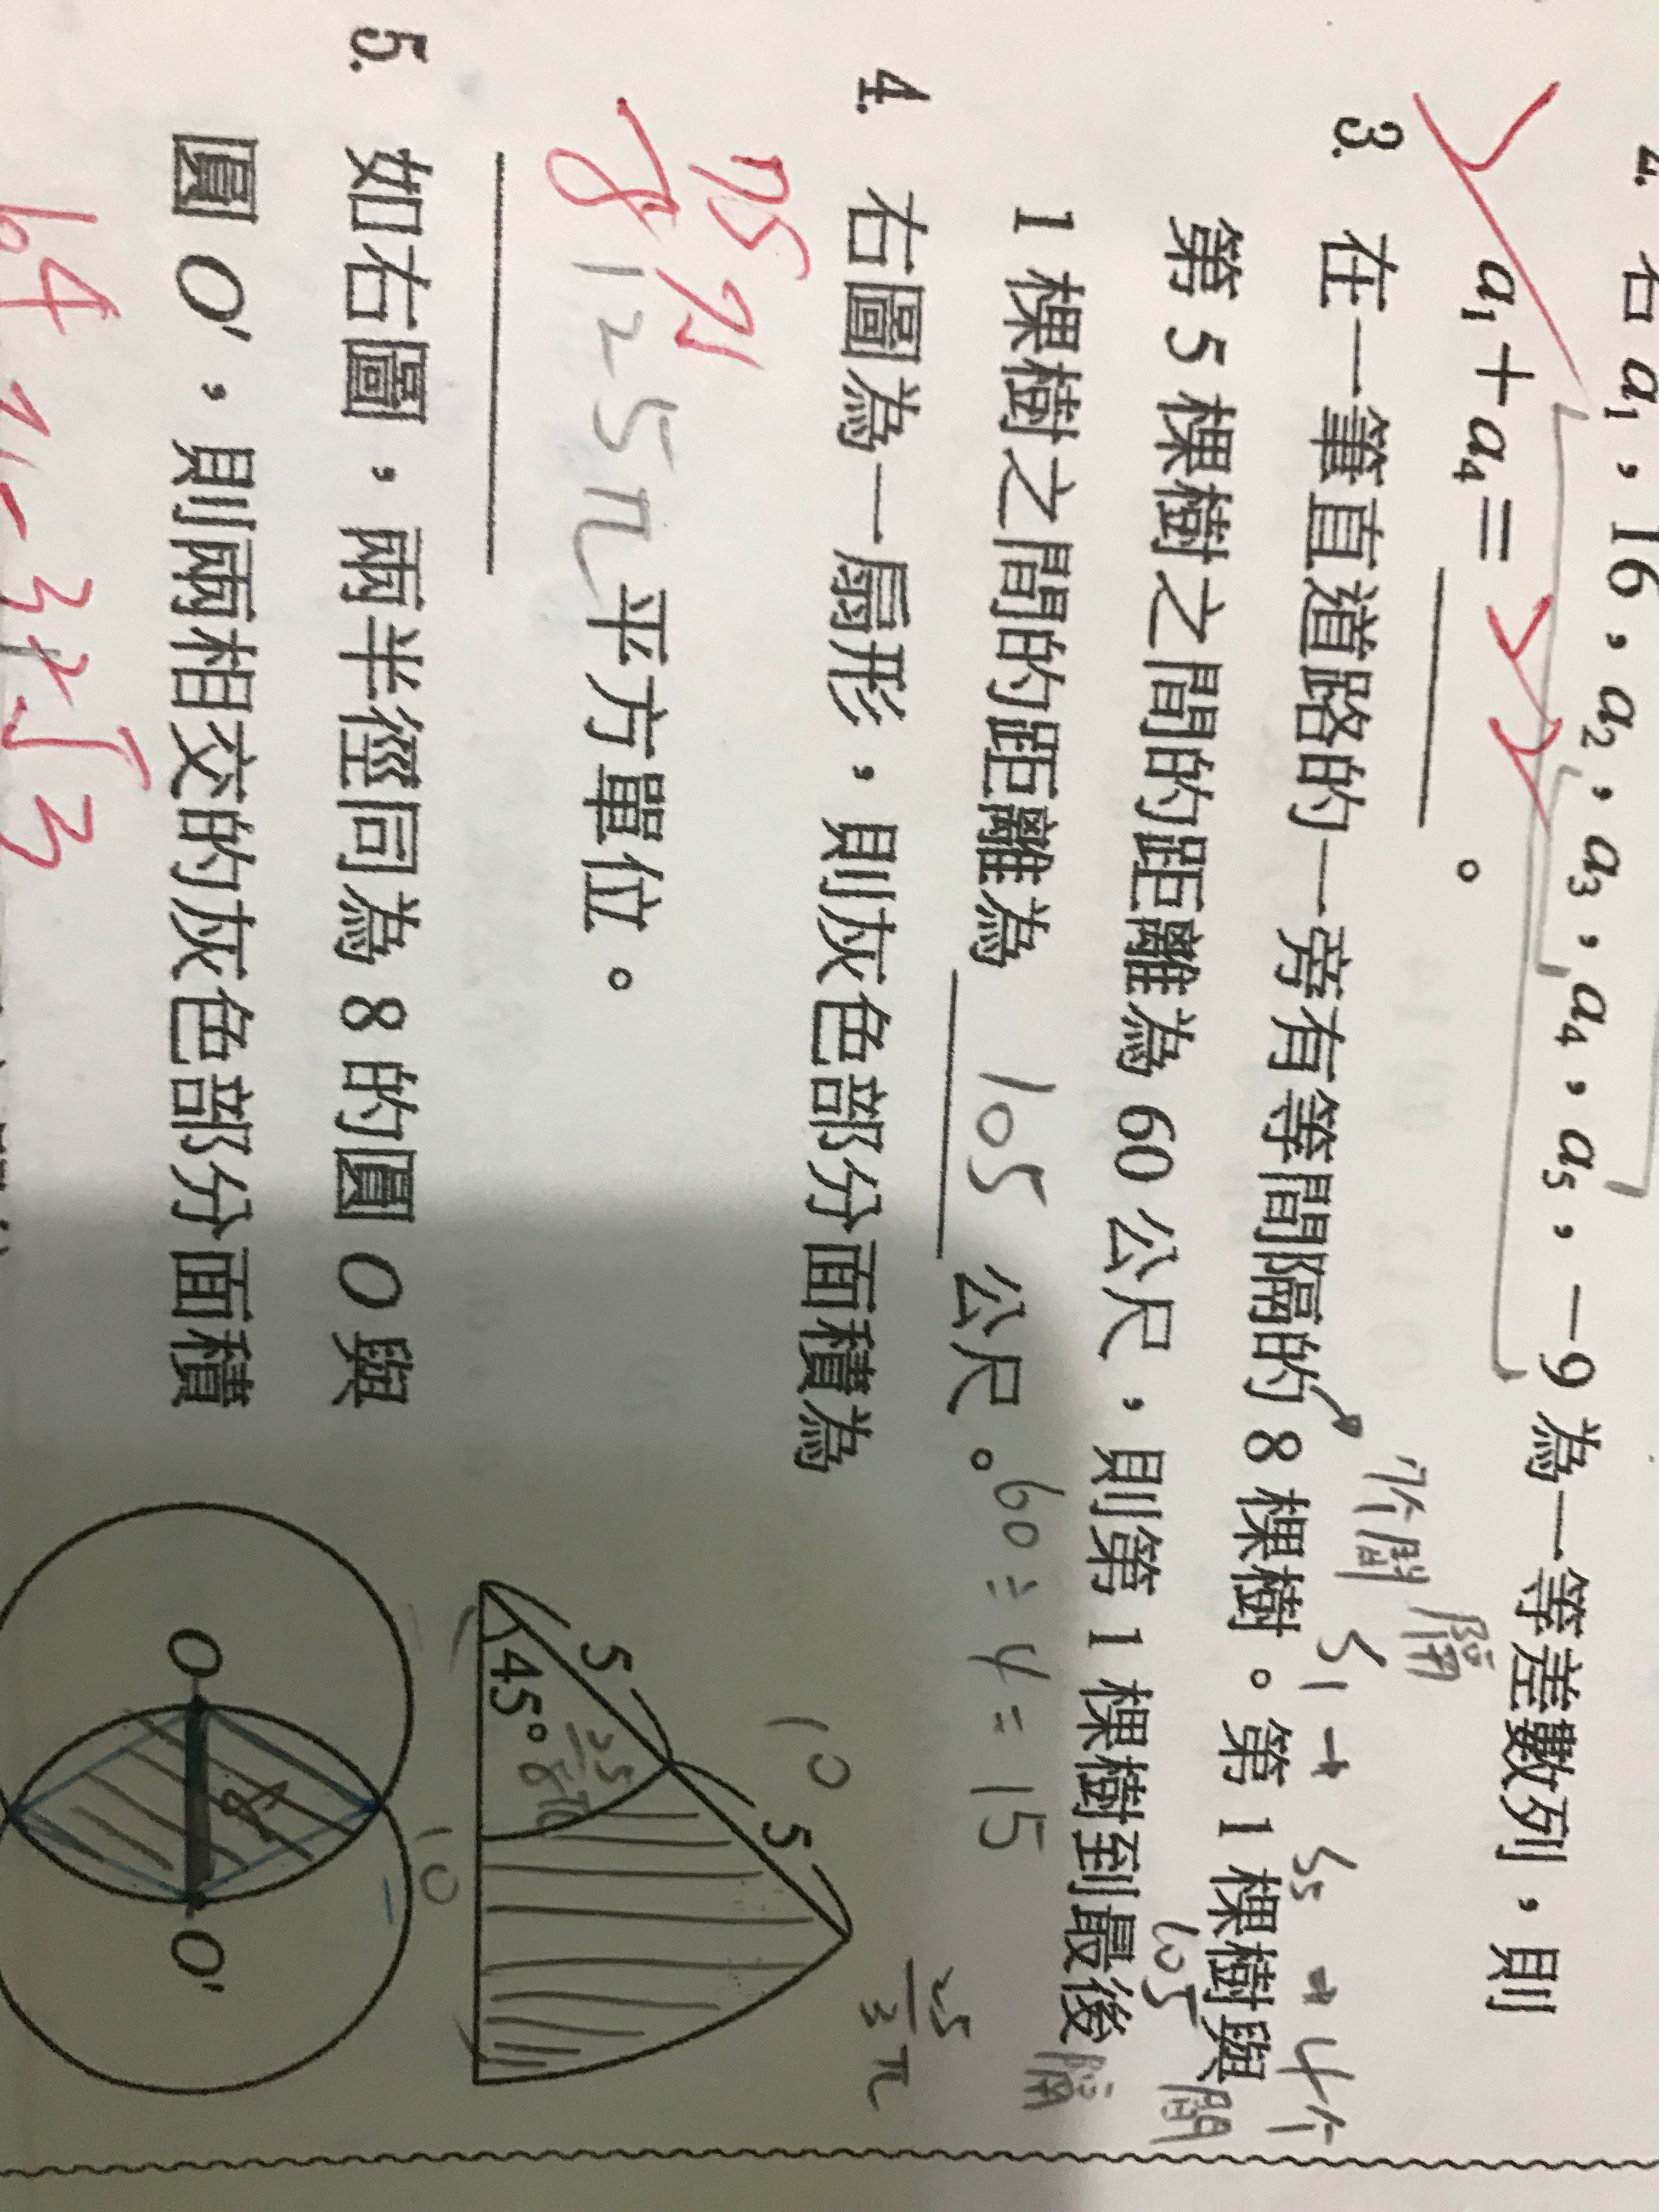 2. 若 a₁，16，a₂，a₃，a₄，a₅，−9 為一等差數列，則
a₁＋a₄＝＿＿＿。
3. 在一筆直道路的一旁有等間隔的 8 棵樹。第 1 棵樹與
第 5 棵樹之間的距離為 60 公尺，則第 1 棵樹到最後
1 棵樹之間的距離為 105 公尺。
7个間隔
S1→S5→4个
間隔
105
60÷4=15
4. 右圖為一扇形，則灰色部分面積為
75π
8
125π 平方單位。
5
5
45°
25
8π
10
10
25
3 π
5. 如右圖，兩半徑同為 8 的圓 O 與
圓 O'，則兩相交的灰色部分面積
O
O'
8